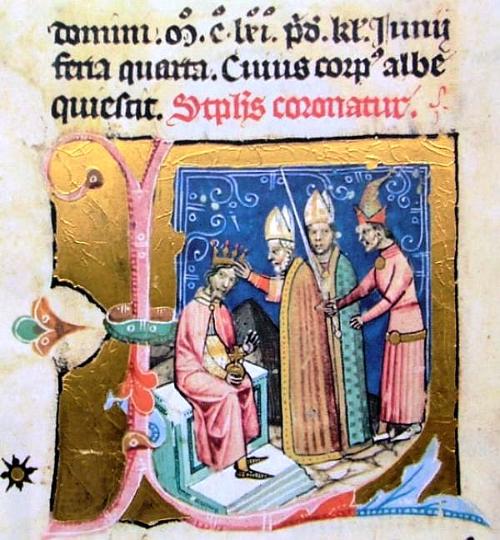 domini. M̊. C̊. lxi. p̄d. kl̄. Junij
feria quarta. Cuius corpꝰ albe
quiescit. Stph̄s coronatur.